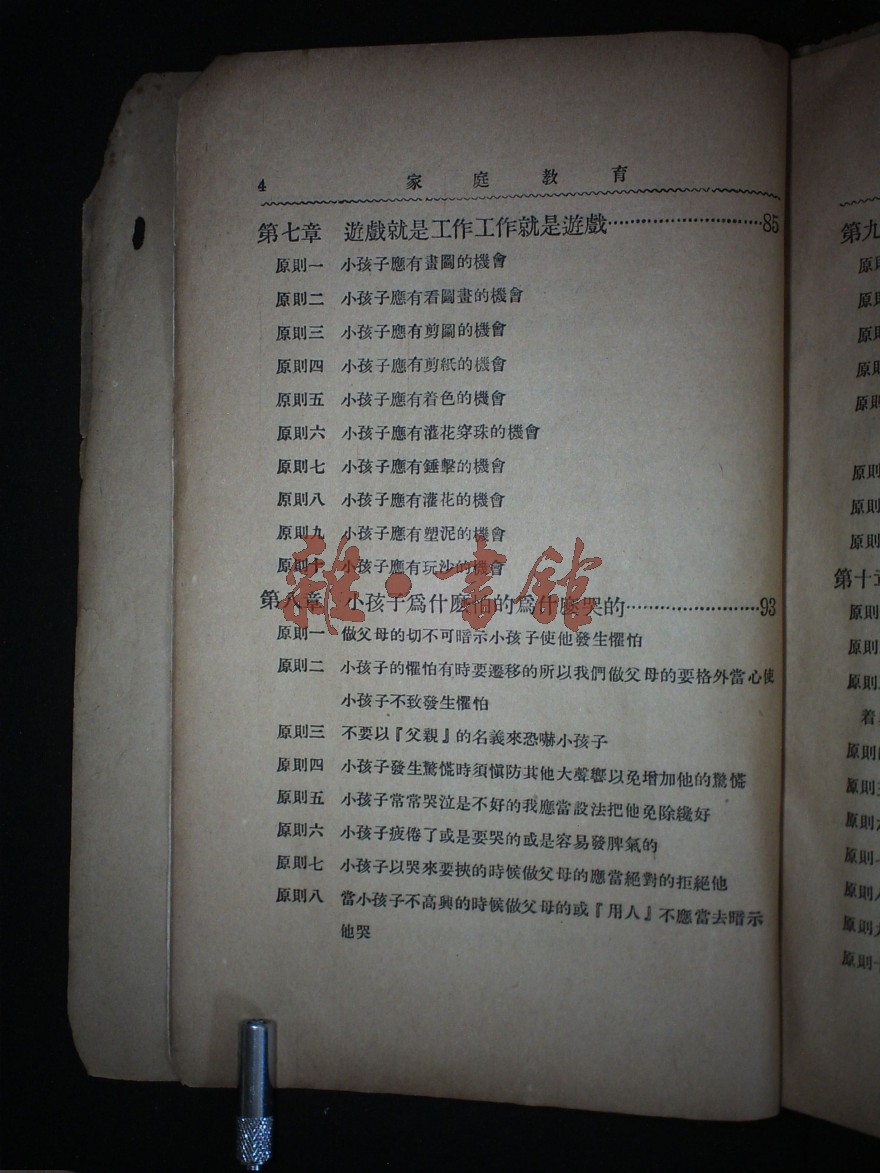 4 家庭教育
第七章 遊戲就是工作工作就是遊戲……………………85
原則一 小孩子應有畫圖的機會
原則二 小孩子應有看圖畫的機會
原則三 小孩子應有剪圖的機會
原則四 小孩子應有剪紙的機會
原則五 小孩子應有着色的機會
原則六 小孩子應有灌花穿珠的機會
原則七 小孩子應有錘擊的機會
原則八 小孩子應有灌花的機會
原則九 小孩子應有塑泥的機會
原則十 小孩子應有玩沙的機會
雜·書館
第八章 小孩子為什麼怕的為什麼哭的…………………93
原則一 做父母的切不可暗示小孩子使他發生懼怕
原則二 小孩子的懼怕有時要遷移的所以我們做父母的要格外當心使
小孩子不致發生懼怕
原則三 不要以『父親』的名義來恐嚇小孩子
原則四 小孩子發生驚慌時須愼防其他大聲響以免增加他的驚慌
原則五 小孩子常常哭泣是不好的我應當設法把他免除纔好
原則六 小孩子疲倦了或是要哭的或是容易發脾氣的
原則七 小孩子以哭來要挾的時候做父母的應當絕對的拒絕他
原則八 當小孩子不高興的時候做父母的或『用人』不應當去暗示
他哭
第九
原則
原則
原則
原則
原則
原則
原則
原則
第十章
原則
原則
原則
着
原則
原則
原則
原則
原則
原則
原則